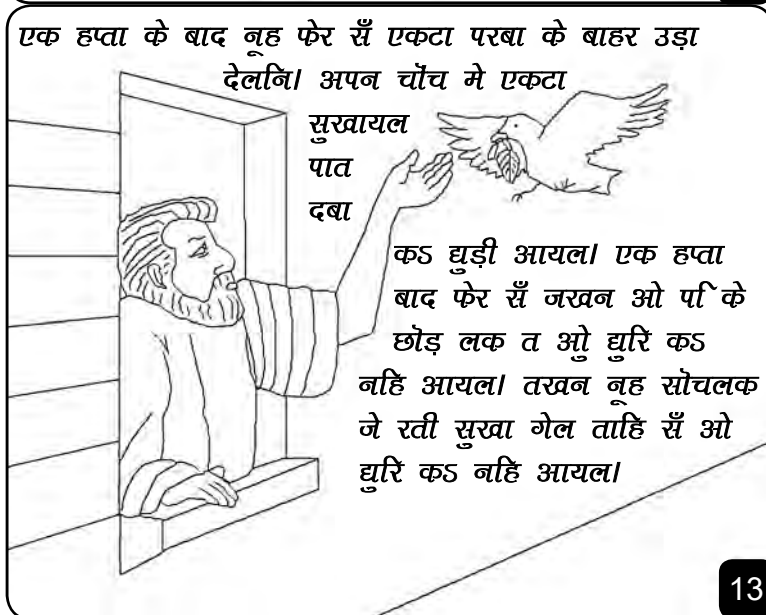 एक हप्ता के बाद नूह फेर सँ एकटा परबा के बाहर उड़ा
देलनि। अपन चोंच मे एकटा
सुखायल
पात
दबा
कऽ घुड़ी आयल। एक हप्ता
बाद फेर सँ जखन ओ पिके
छोड़ लक त ओ घुरि कऽ
नहि आयल। तखन नूह सोचलक
जे रती सुखा गेल ताहि सँ ओ
घुरि कऽ नहि आयल।
13